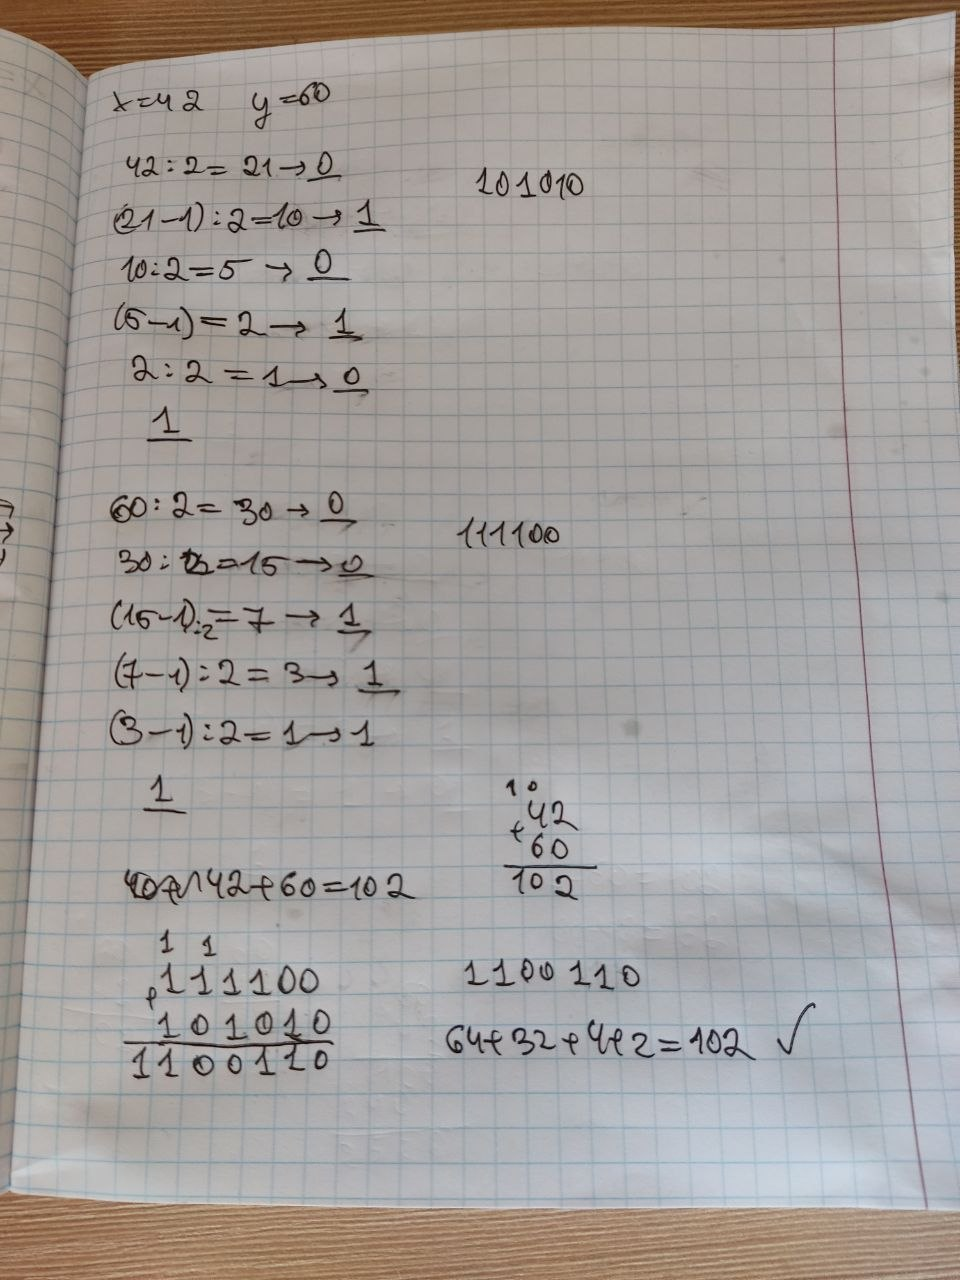 x=42 y=60
42:2=21→0
101010
(21-1):2=10→1
10:2=5→0
(5-1)=2→1
2:2=1→0
1
60:2=30→0
111100
30:2=15→0
(15-1):2=7→1
(7-1):2=3→1
(3-1):2=1→1
1
10
42
+
60
102
42+60=102
1 1
111100
+
101010
1100110
1100110
64+32+4+2=102 ✓